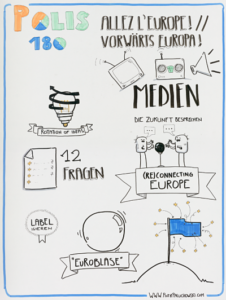 POLIS
180
ALLEZ L'EUROPE! //
VORWÄRTS EUROPA!
MEDIEN
DIE ZUKUNFT BESPRECHEN
ROTATION OF IDEAS
12
FRAGEN
(RE)CONNECTING
EUROPE
LABEL
"EUROBLASE"